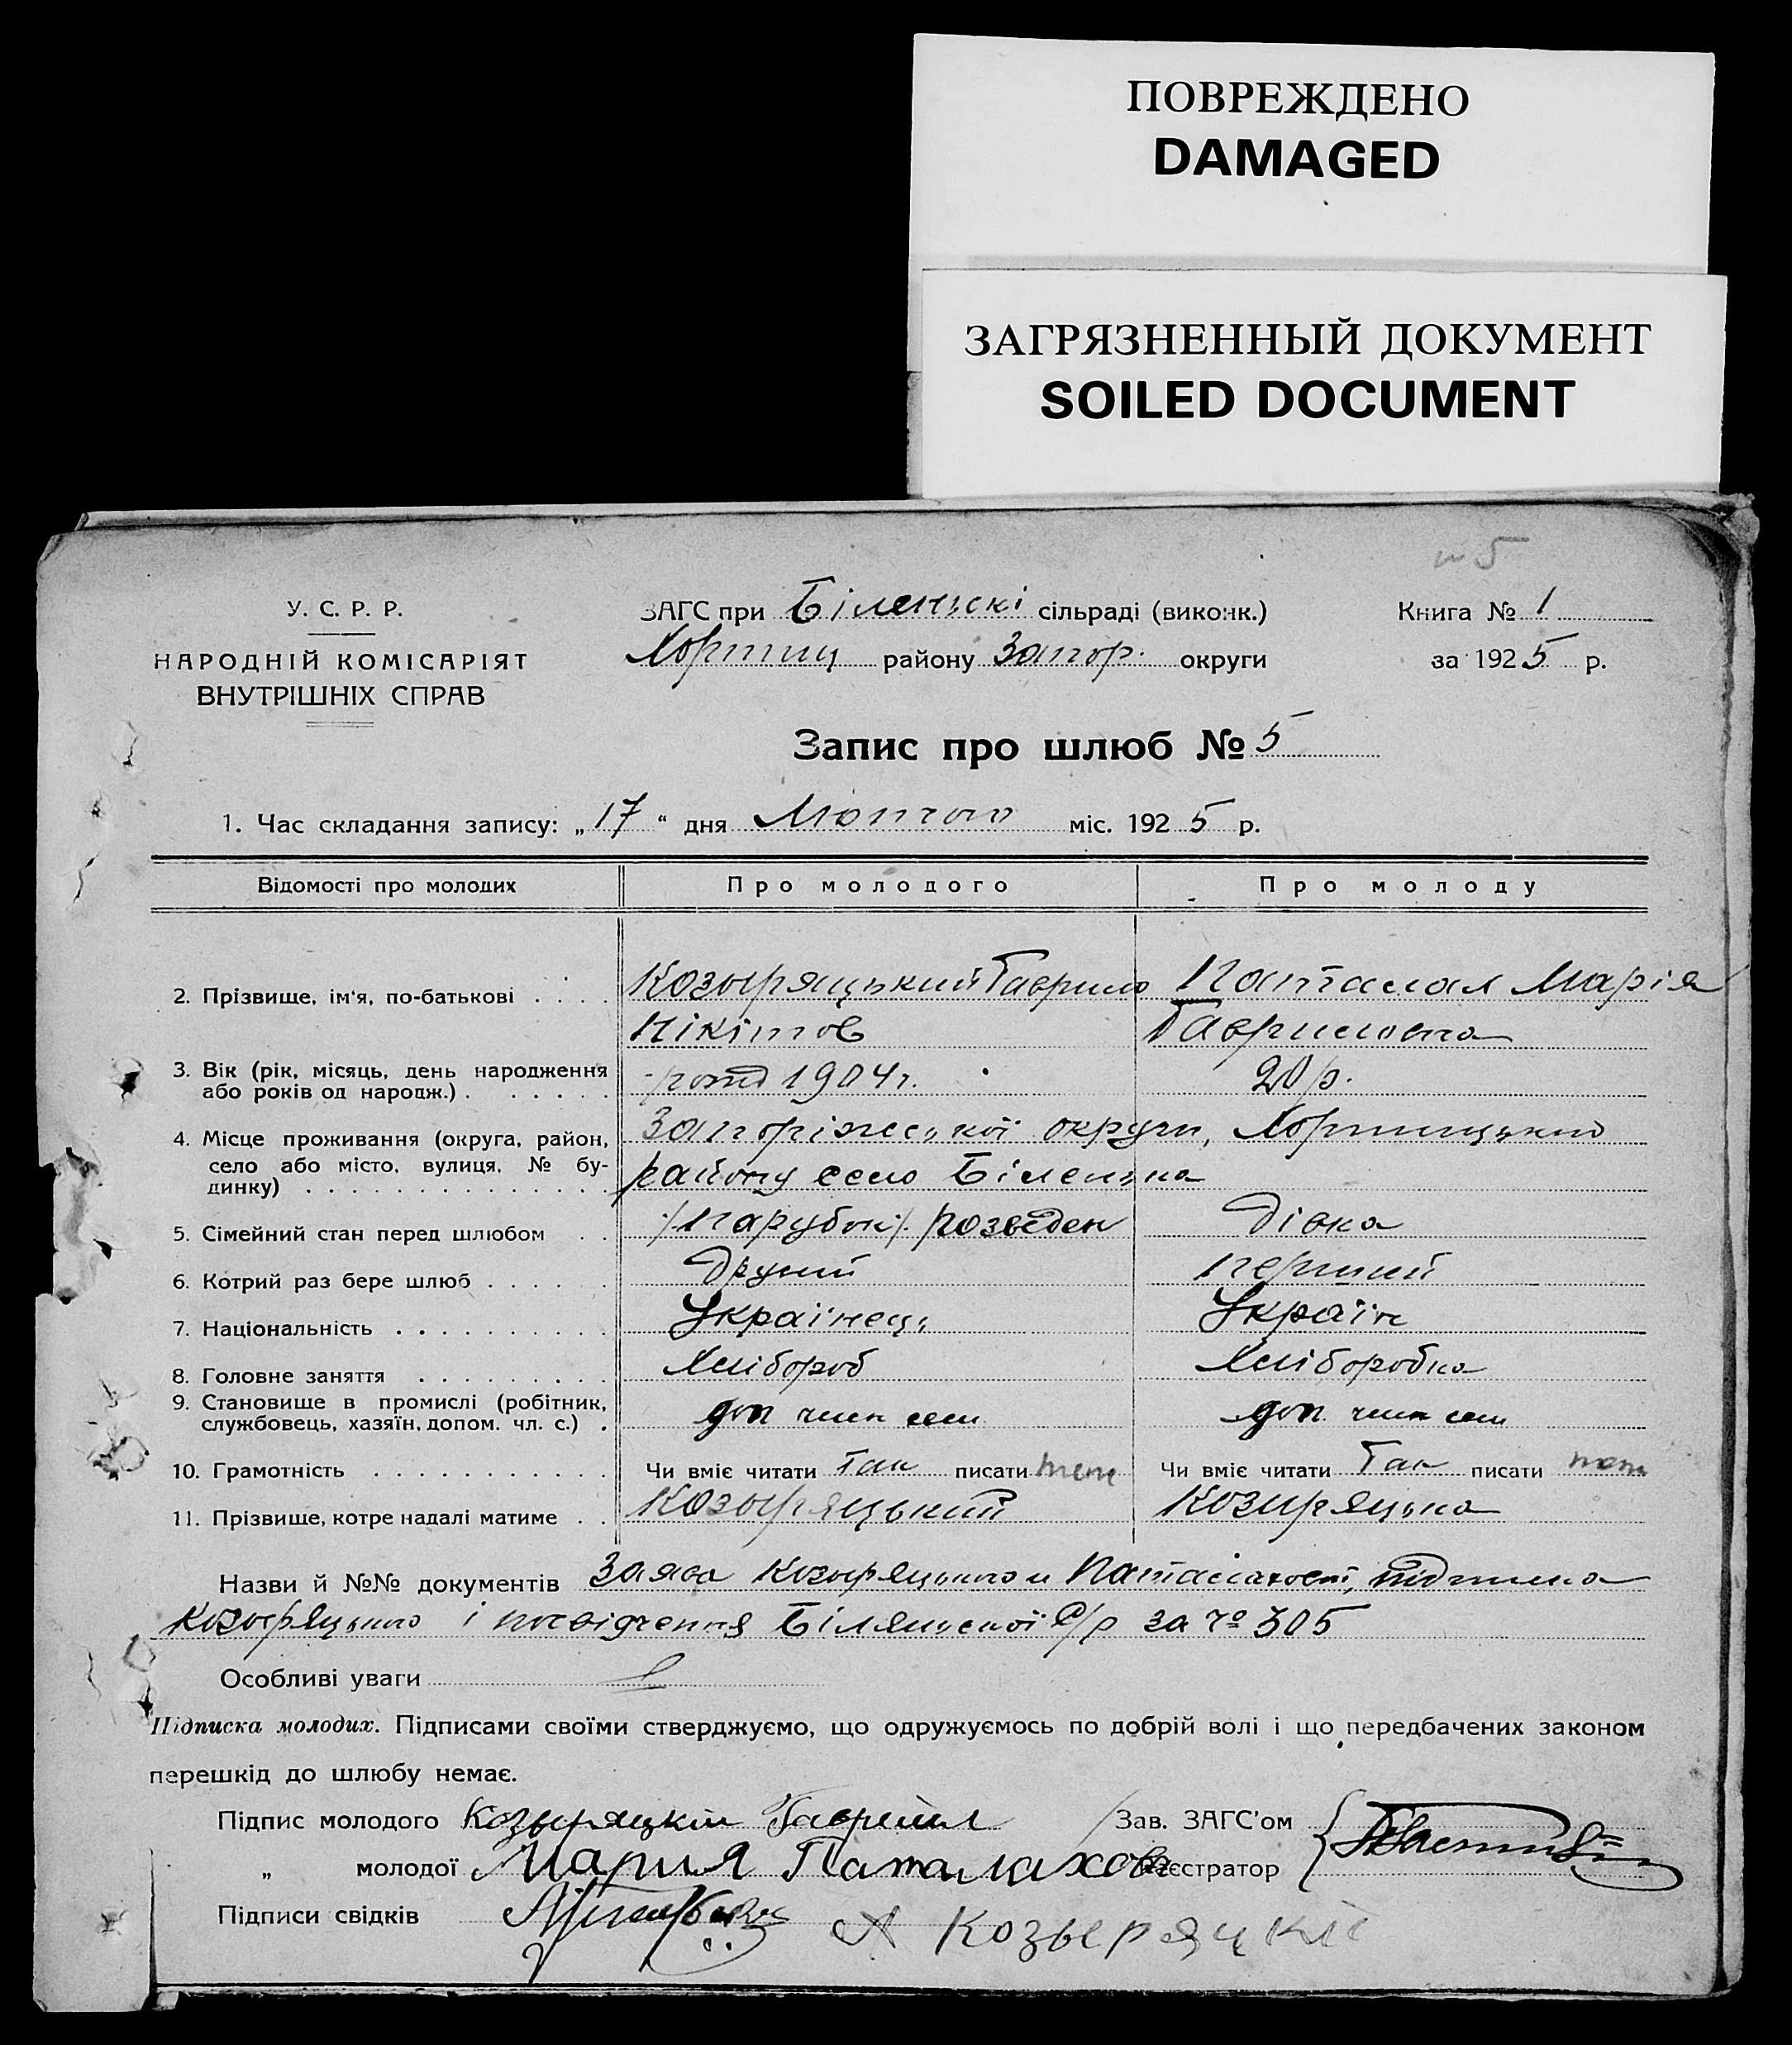 ПОВРЕЖДЕНО
DAMAGED
ЗАГРЯЗНЕННЫЙ ДОКУМЕНТ
SOILED DOCUMENT
5
У. С. Р. Р.
НАРОДНІЙ КОМІСАРІЯТ
ВНУТРІШНІХ СПРАВ
ЗАГС при Біленьскі сільраді (виконк.)
Хортиц району Запор. округи
Книга № 1
за 1925 р.
Запис про шлюб № 5
1. Час складання запису: „17“ дня Лютого міс. 1925 р.
Відомості про молодих
Про молодого
Про молоду
2. Прізвище, ім'я, по-батькові . . . .
Козыряцький Гаврило
Нікітов
Паталах Марія
Гавриловна
3. Вік (рік, місяць, день народження
або років од народж.) . . . . . .
рожд 1904 г.
20 р.
4. Місце проживання (округа, район,
село або місто, вулиця, № бу-
динку) . . . . . . . . . . . . . .
Запоріжської округи, Хортицького
району село Біленька
5. Сімейний стан перед шлюбом . .
/Парубок/. розведен
Дівка
6. Котрий раз бере шлюб . . . . . .
Другий
перший
7. Національність . . . . . . . . . .
Українець
Україн
8. Головне заняття . . . . . . . . .
Хлібороб
Хліборобка
9. Становище в промислі (робітник,
службовець, хазяїн, допом. чл. с.) .
доп член семи
доп. член семи
10. Грамотність . . . . . . . . . . .
Чи вміє читати Так писати теж
Чи вміє читати Так писати
11. Прізвище, котре надалі матиме . .
Козыряцький
Козиряцька
Назви й №№ документів Заява Козыряцького и підписка
Козыряцького і посвідчення Біляньскої с/р за № 305
Особливі уваги
Підписка молодих. Підписами своїми стверджуємо, що одружуємось по добрій волі і що передбачених законом
перешкід до шлюбу немає.
Підпис молодого Козыряцкий Гавриил
Зав. ЗАГС'ом
„ молодої Мария Паталахова
Реєстратор
Підписи свідків
А Козыряцкий